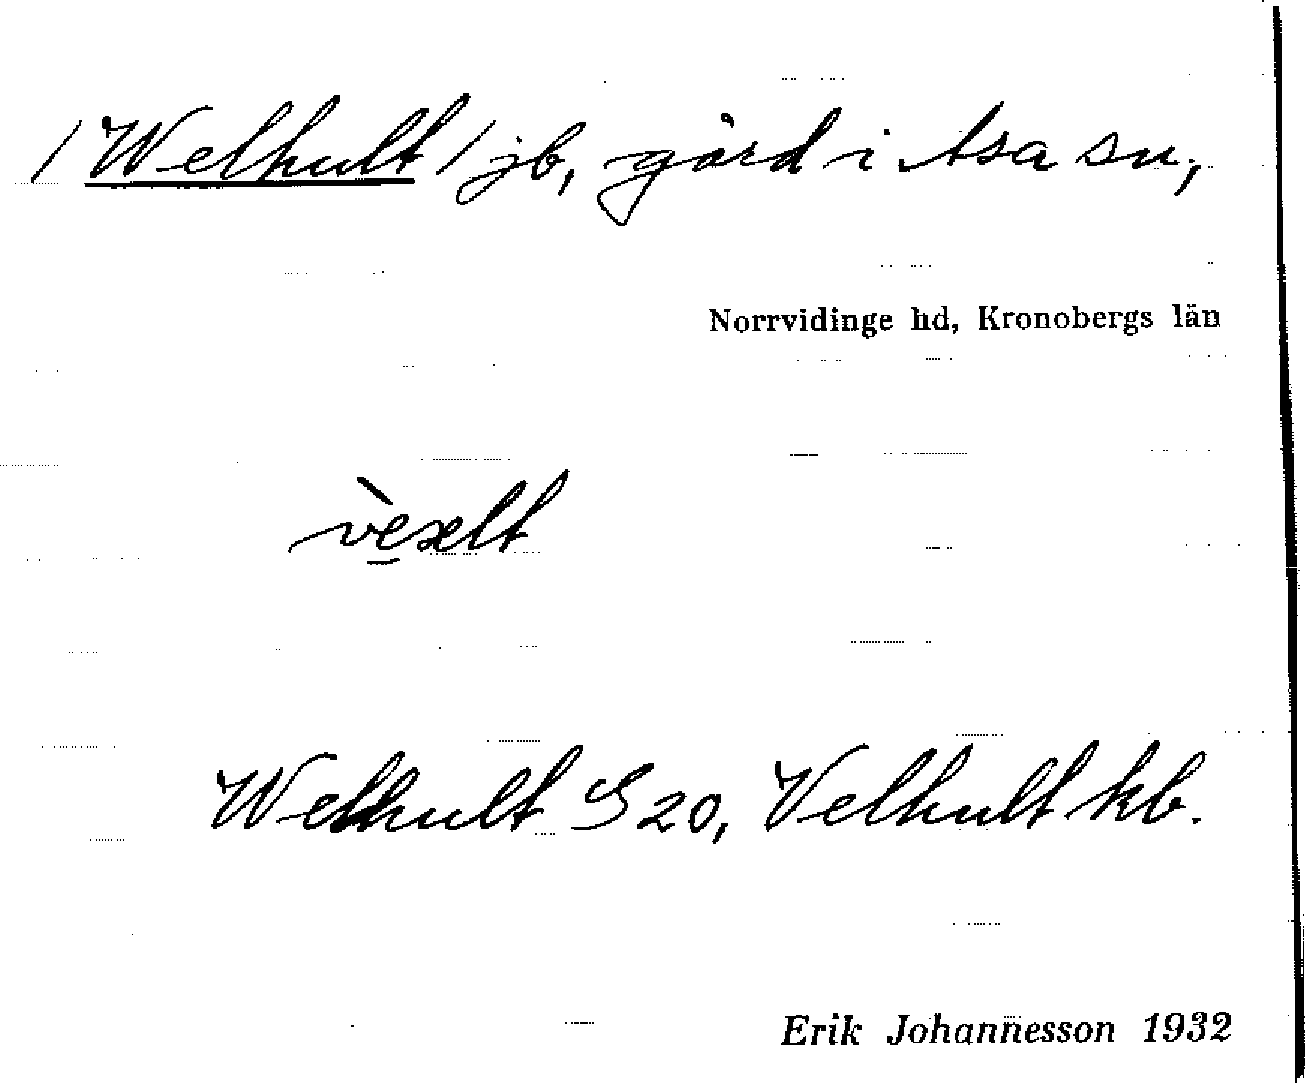 /Welhult/ jb, gård i Asa sn,
Norrvidinge hd, Kronobergs län
Welhult S 20, Velhult kb.
Erik Johannesson 1932